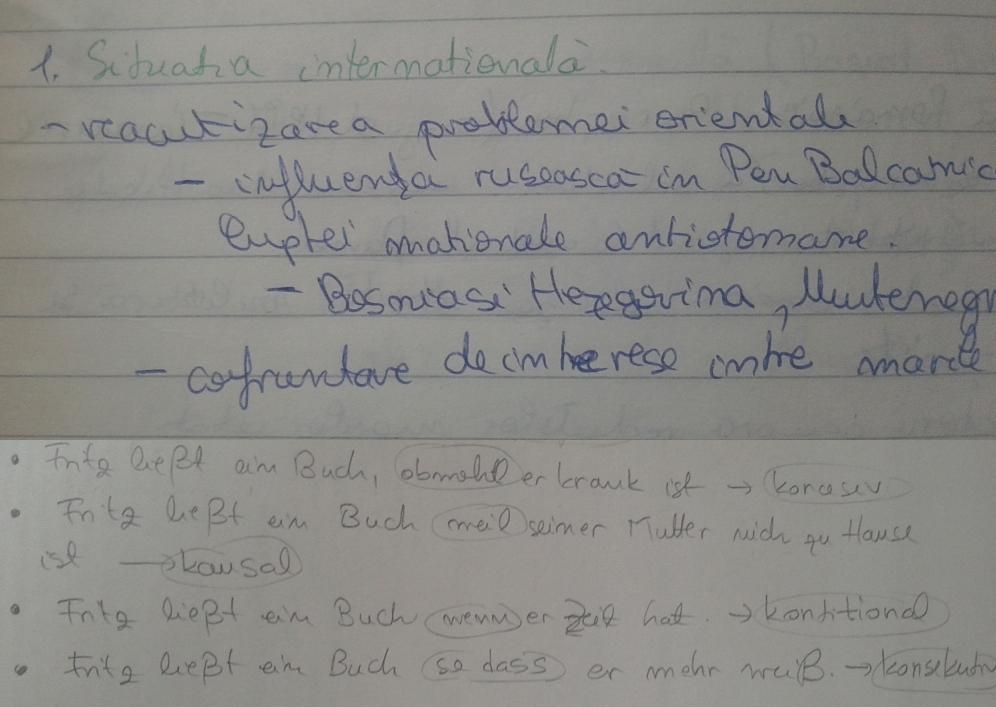 1. Situatia internatională.
- reacutizarea problemei orientale
- influența rusească in Pen Balcanic
luptei nationale antiotomane.
- Bosnia si Herzegovina, Muntenegr
- cofruntare de interese intre marile
• Fritz ließt ein Buch, obwohl er krank ist → koncesiv
• Fritz ließt ein Buch weil seiner Mutter nich zu Hause
ist → kausal
• Fritz ließt ein Buch wenn er Zeit hat. → kontitional
• Fritz ließt ein Buch so dass er mehr weiß. → konsekutiv